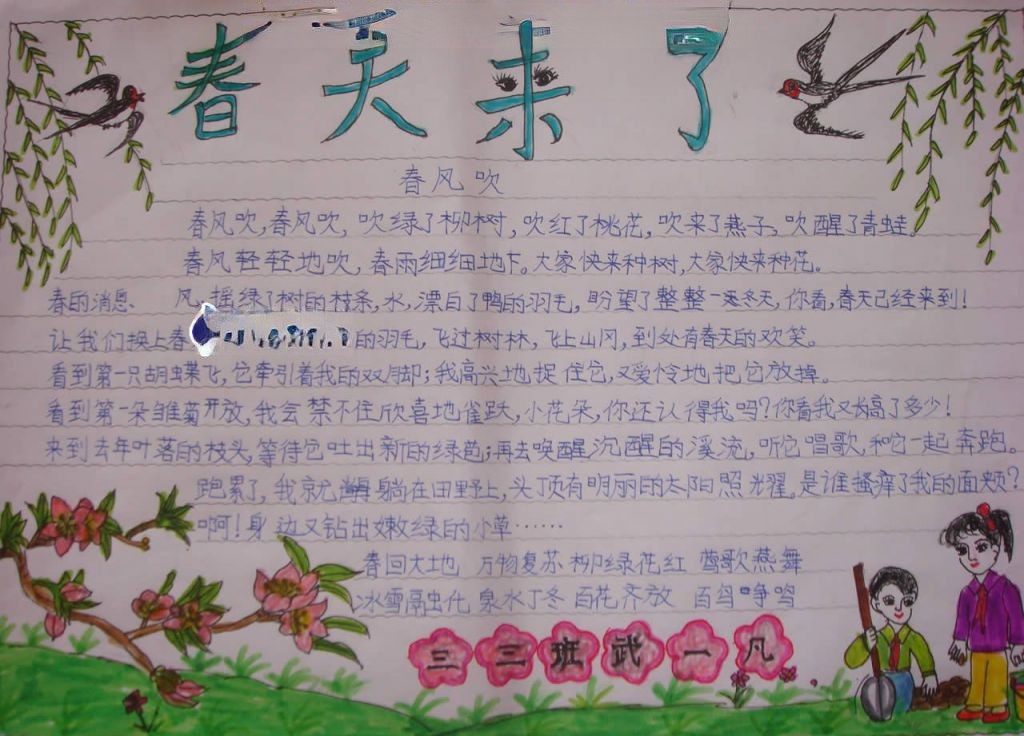 春天来了
春风吹
春风吹,春风吹,吹绿了柳树,吹红了桃花,吹来了燕子,吹醒了青蛙。
春风轻轻地吹,春雨细细地下。大家快来种树,大家快来种花。
春的消息、 风,摇绿了树的枝条,水,漂白了鸭的羽毛,盼望了整整一冬天,你看,春天已经来到!
让我们换上春 的羽毛,飞过树林,飞上山冈,到处有春天的欢笑。
看到第一只胡蝶飞,它牵引着我的双脚;我高兴地捉住它,又爱怜地把它放掉。
看到第一朵雏菊开放,我会禁不住欣喜地雀跃,小花朵,你还认得我吗?你看我又长高了多少!
来到去年叶落的枝头,等待它吐出新的绿芭;再去唤醒沉醒的溪流,听它唱歌,和它一起奔跑。
跑累了,我就躺在田野上,头顶有明丽的太阳照耀。是谁搔痒了我的面颊?
啊!身边又钻出嫩绿的小草……
春回大地 万物复苏 柳绿花红 莺歌燕舞
冰雪融化 泉水丁冬 百花齐放 百鸟争鸣
三二班武一凡